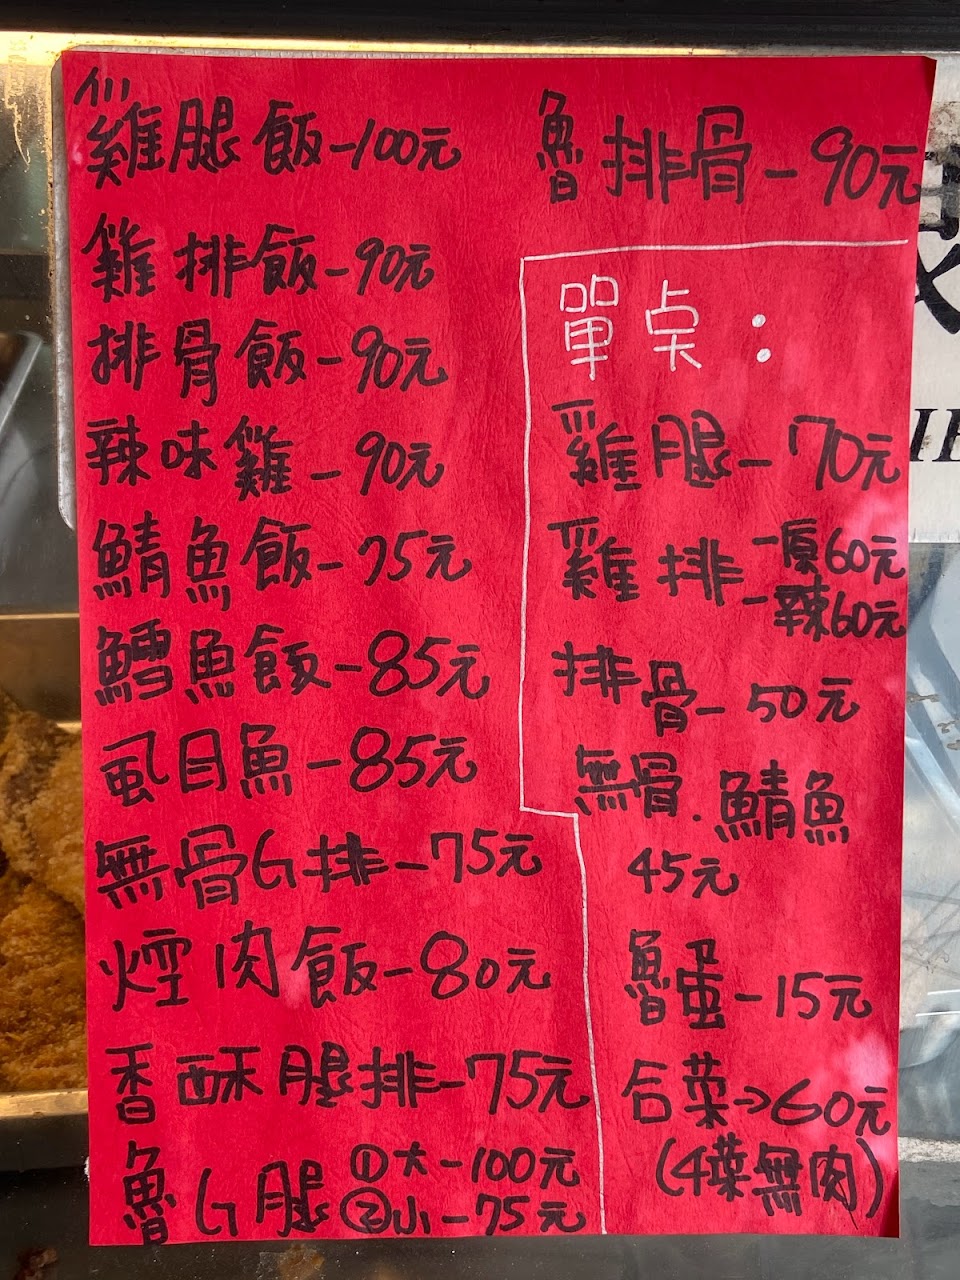 雞腿飯-100元
雞排飯-90元
排骨飯-90元
辣味雞-90元
鯖魚飯-75元
鱈魚飯-85元
虱目魚-85元
無骨G排-75元
焢肉飯-80元
香酥腿排-75元
魯G腿①大-100元
②小-75元
魯排骨-90元
單点：
雞腿-70元
雞排-原60元
-辣60元
排骨-50元
無骨.鯖魚
45元
魯蛋-15元
合菜→60元
(4菜無肉)